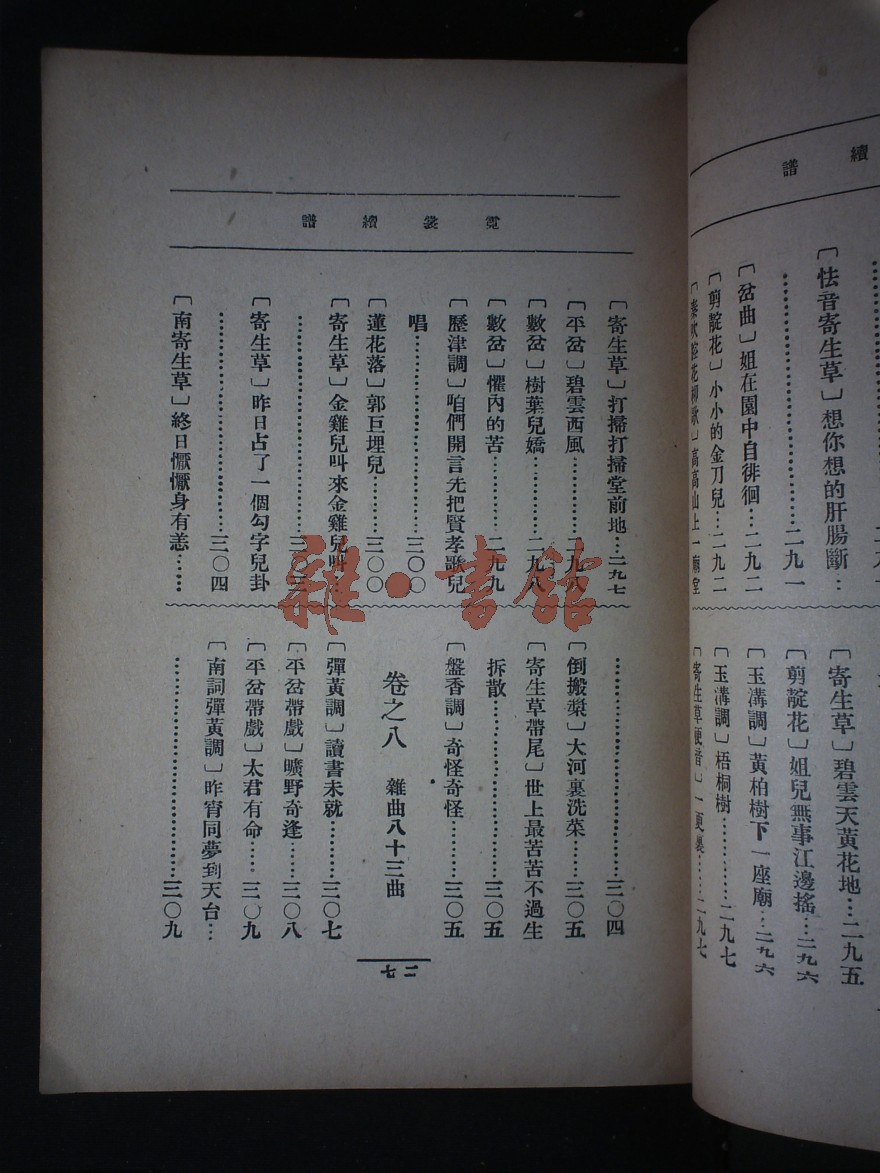 續譜
〔怯音寄生草〕想你想的肝腸斷…
……………………二九一
〔岔曲〕姐在園中自徘徊…二九二
〔剪靛花〕小小的金刀兒…二九二
高高山上一廟堂
〔寄生草〕碧雲天黃花地…二九五
〔剪靛花〕姐兒無事江邊搖…二九六
〔玉溝調〕黃柏樹下一座廟…二九六
〔玉溝調〕梧桐樹…………二九七
〔寄生草便音〕一更裏……二九七
霓裳續譜
〔寄生草〕打掃打掃堂前地…二九七
〔平岔〕碧雲西風…………二九八
〔數岔〕樹葉兒嬌…………二九八
〔數岔〕懼內的苦…………二九九
〔歷津調〕咱們開言先把賢孝歌兒
唱……………………三〇〇
〔蓮花落〕郭巨埋兒………三〇〇
〔寄生草〕金雞兒叫來金雞兒叫…
……………………三〇三
〔寄生草〕昨日占了一個勾字兒卦
……………………三〇四
〔南寄生草〕終日懨懨身有恙……
……………………三〇四
〔倒搬槳〕大河裏洗菜……三〇五
〔寄生草帶尾〕世上最苦苦不過生
拆散……………………三〇五
〔盤香調〕奇怪奇怪………三〇五
卷之八　雜曲八十三曲
〔彈黃調〕讀書未就………三〇七
〔平岔帶戲〕曠野奇逢……三〇八
〔平岔帶戲〕太君有命……三〇九
〔南詞彈黃調〕昨宵同夢到天台…
……………………三〇九
二七
雜·書館